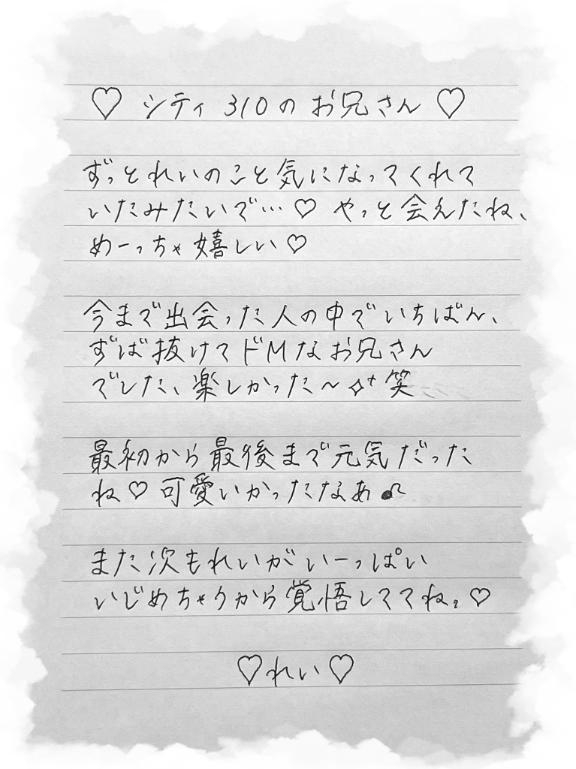 ♡ シティ 310のお兄さん ♡
ずっとれいのこと気になってくれて
いたみたいで…♡ やっと会えたね、
めーっちゃ嬉しい♡
今まで出会った人の中でいちばん、
ずば抜けてドMなお兄さん
でした、楽しかった〜✧⁺笑
最初から最後まで元気だった
ね♡可愛いかったなあ
また次もれいがいーっぱい
いじめちゃうから覚悟しててね。♡
♡れい♡